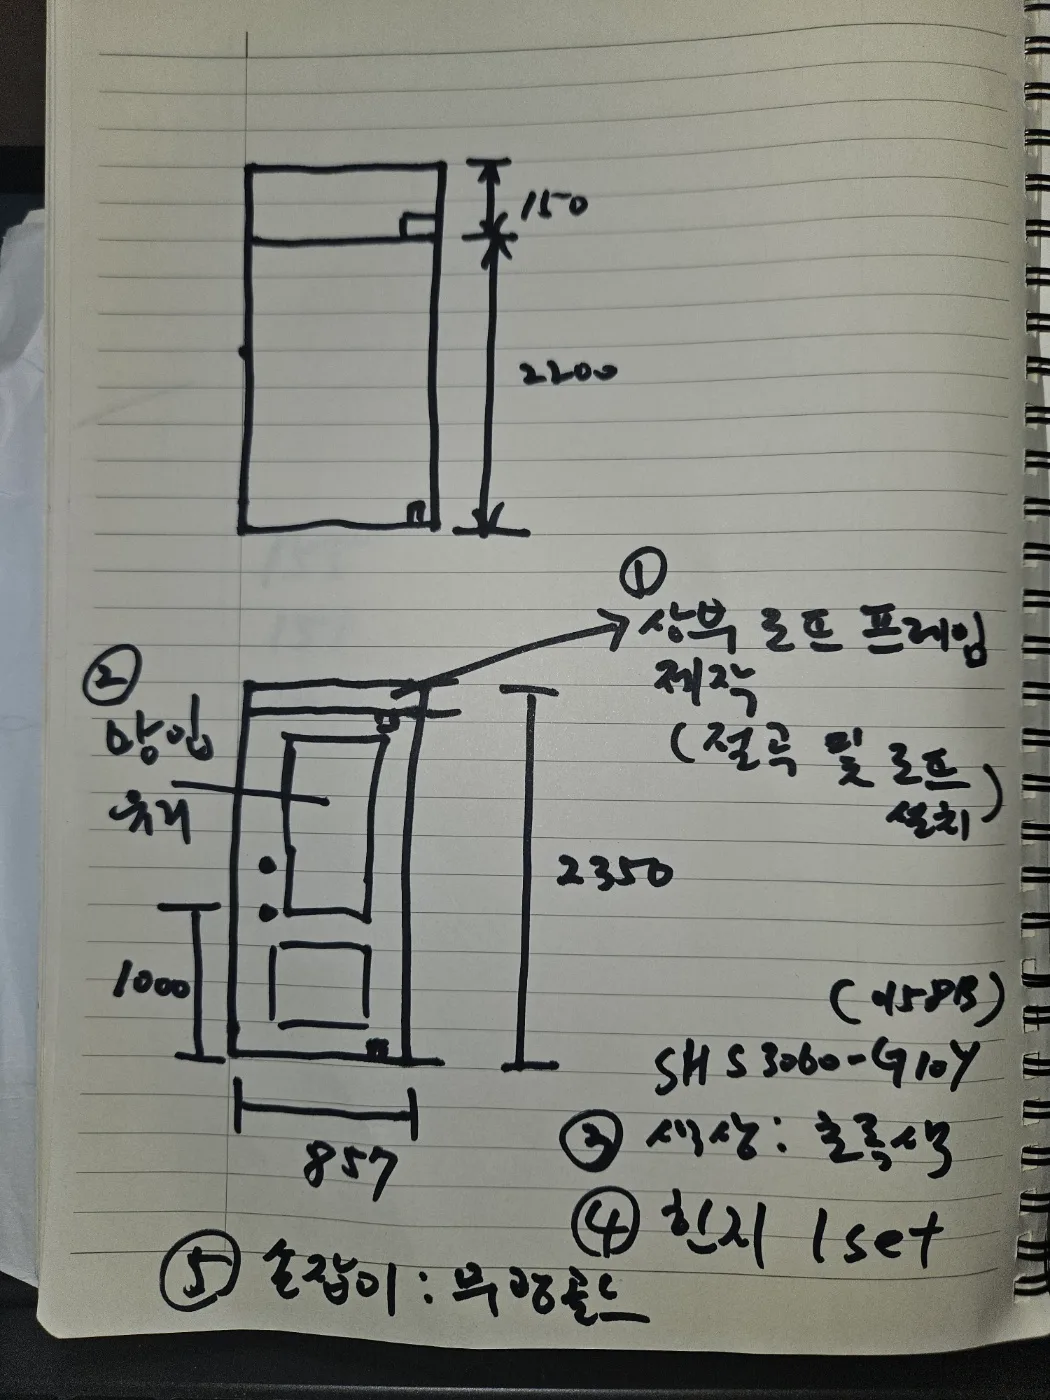 150
2200
①
상부 로프 프레임
제작
(절곡 및 로프
설치)
②
망입
유리
2350
1000
857
SHS3060-G10Y
③ 색상: 초록색
④ 힌지 1set
⑤ 손잡이: 무광골드